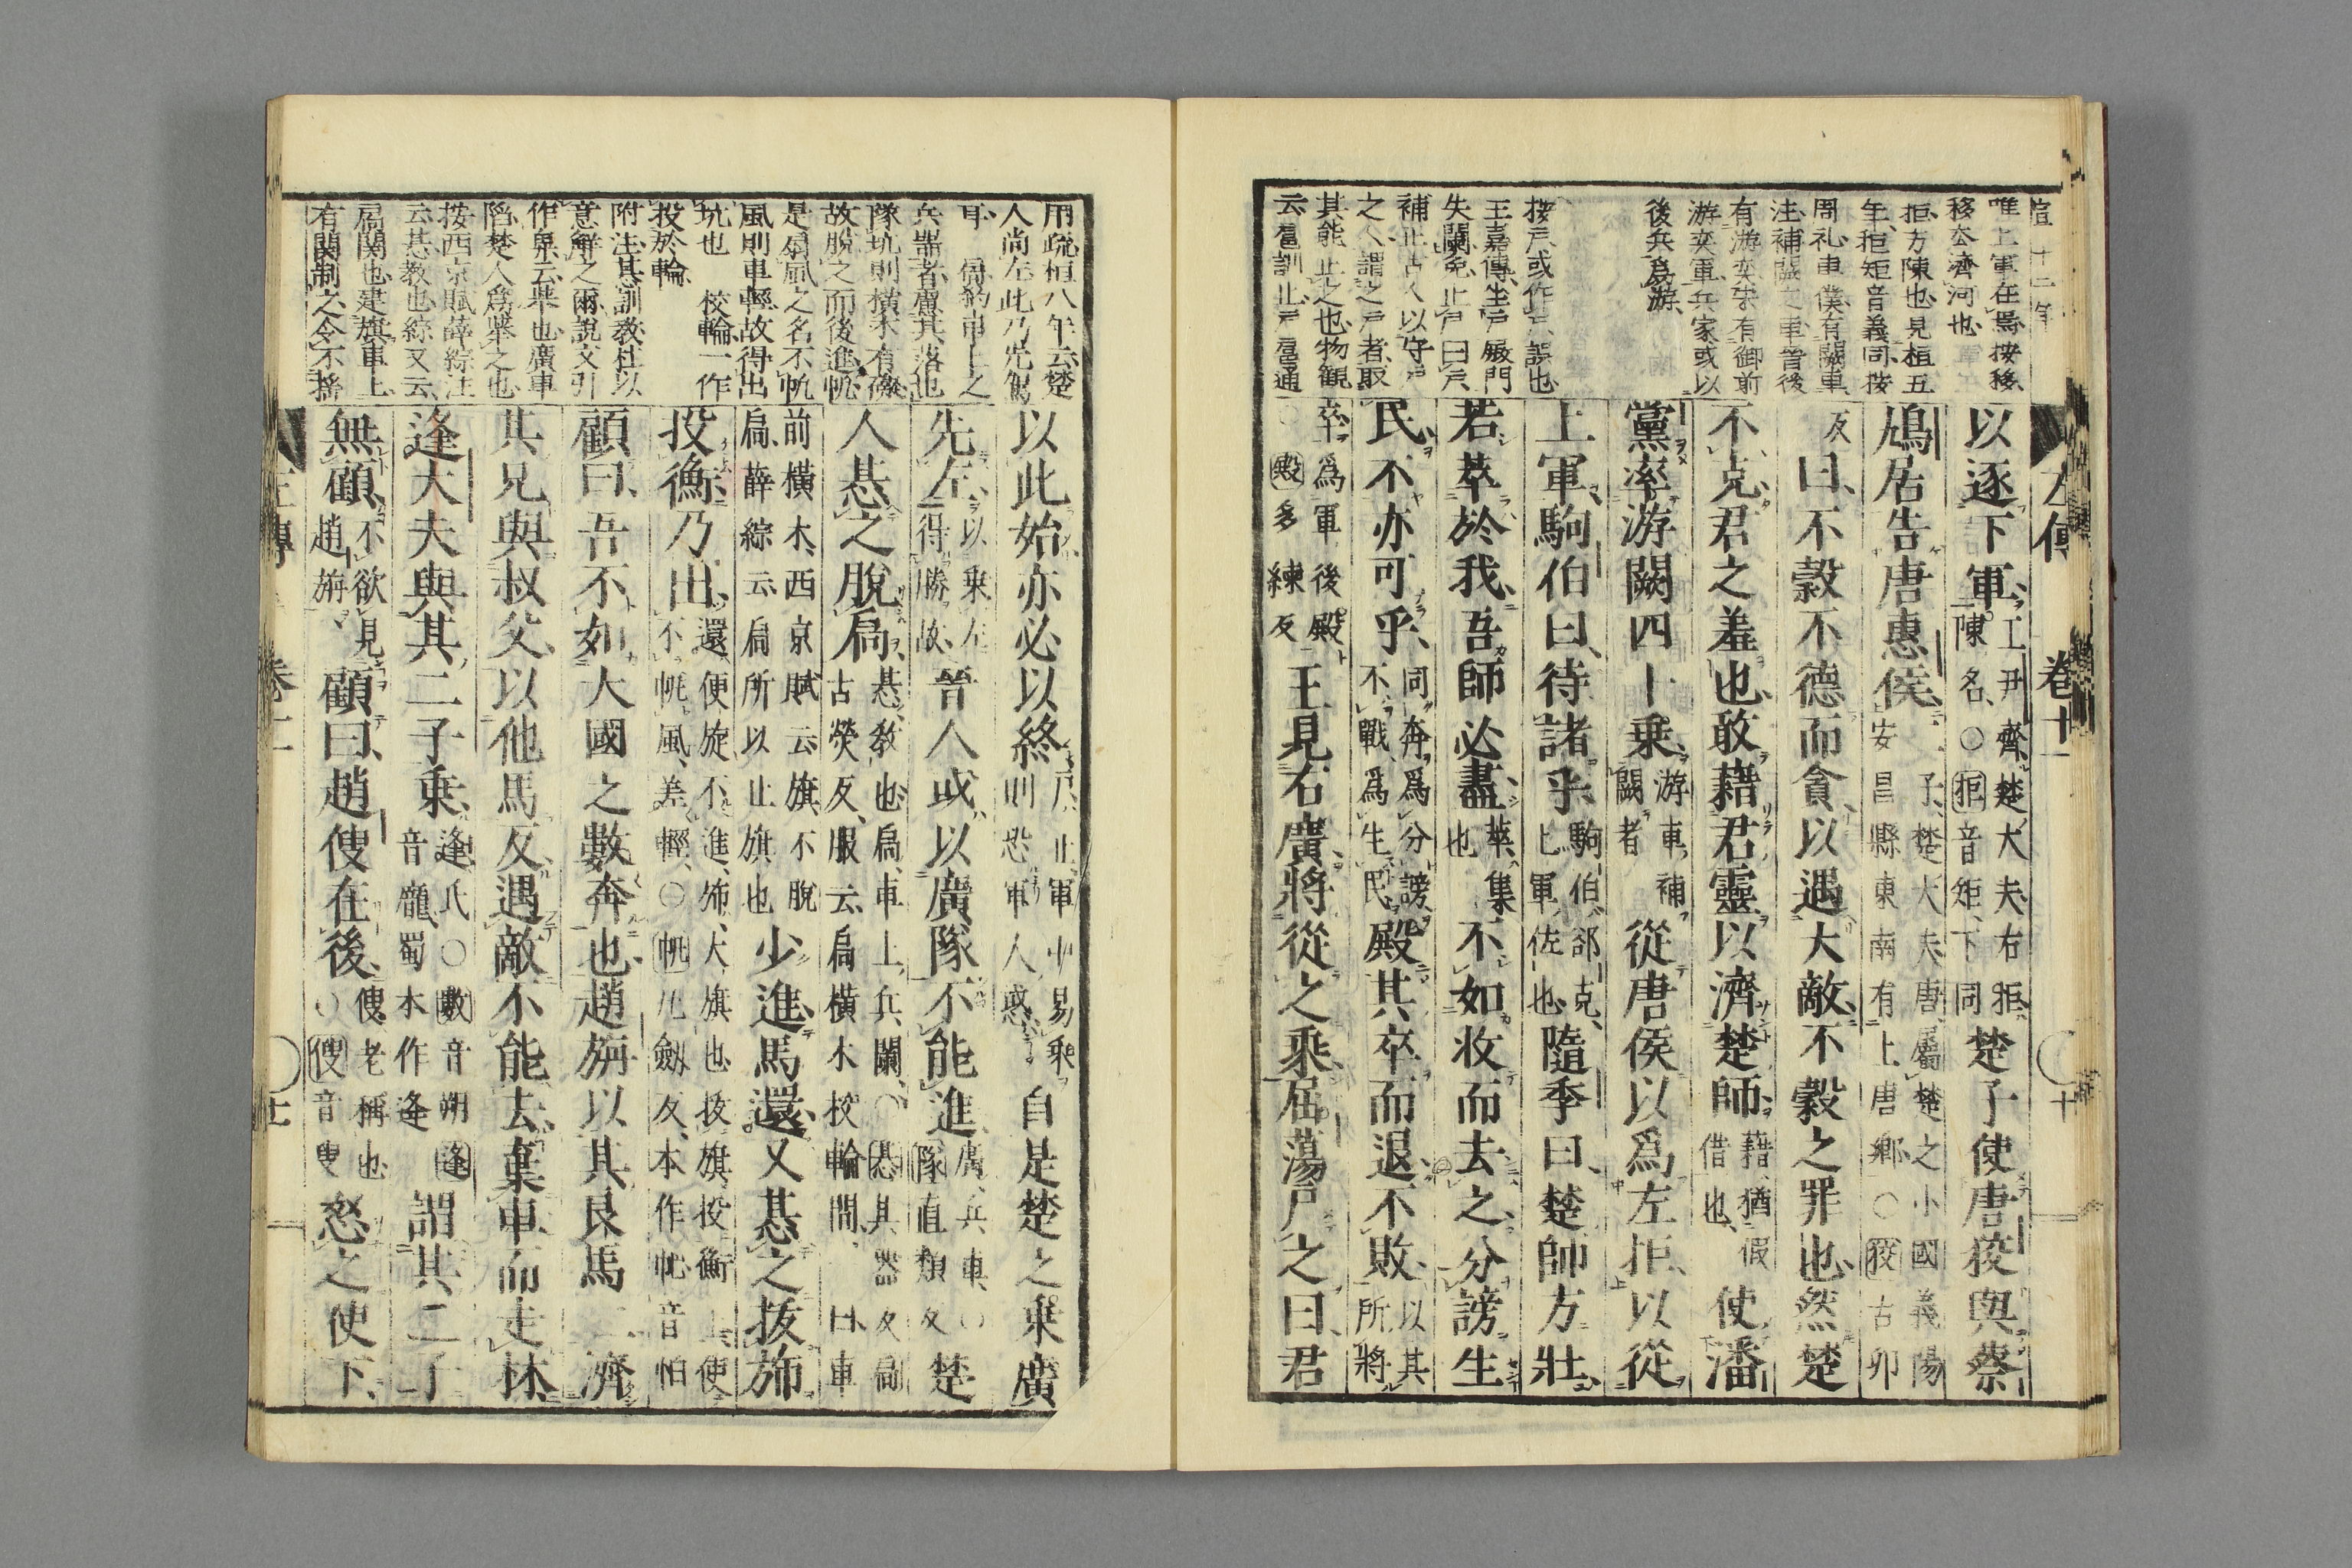 唯上軍在焉按移
移本濟河也
拒方陳也見桓五
年拒矩音義同按
周礼車僕有闕車
注補闕之車晉後
有游奕宋有御前
游奕軍兵家或以
後兵爲游
按尸或作户誤也
王嘉傳坐戸殿門
失闌免止戸曰戸
補止古人以守戸
之人謂之戸者取
其能止之也物観
云扈訓止戸扈通
左傳 卷十一 十
以逐下軍工尹齊楚大夫右拒
陳名〇拒音矩下同楚子使唐狡與蔡
鳩居告唐惠侯子楚大夫唐屬楚之小國義陽
安昌縣東南有上唐鄉〇狡古卯
反曰不穀不德而貪以遇大敵不穀之罪也然楚
不克君之羞也敢藉君靈以濟楚師藉猶假
借也使潘
黨率游闕四十乗游車補
闕者從唐侯以爲左拒以從
上軍駒伯曰待諸乎駒伯郤克
上軍佐也隨季曰楚師方壯
若萃於我吾師必盡萃集
也不如收而去之分謗生
民不亦可乎同奔爲分謗
不戰爲生民殿其卒而退不敗以其
所將
卒爲軍後殿
〇殿多練反王見右廣將從之乗屈蕩尸之曰君
用疏桓八年云楚
人尚左此乃先駕
耳
兵器者慮其落也
隊坑則横木有礙
故脫之而後進帆
是扇風之名不帆
風則車輕故得出
坑也 校輪一作
投於輪
附注惎訓教杜以
意解之爾說文引
作㠱云舉也廣車
陷楚人爲舉之也
按西京賦薛綜注
云惎教也綜又云
扃關也建旗車上
有關制之令不搖
以此始亦必以終尸止軍中易乗
則恐軍人惑自是楚之乗廣
先左以乗左
得勝故晉人或以廣隊不能進廣兵車〇
隊直類反楚
人惎之脫扃惎教也扃車上兵闌〇惎其器反扃
古熒反服云扃横木校輪間一曰車
前横木西京賦云旗不脫
扃薛綜云扃所以止旗也少進馬還又惎之拔斾
投衡乃出還便旋不進斾大旗也拔旗投衡上使
不帆風差輕〇帆凡劔反本作帊音怕
顧曰吾不如大國之數奔也趙旃以其良馬二濟
其兄與叔父以他馬反遇敵不能去棄車而走林
逢大夫與其二子乗逢氏〇數音朔逢
音龐蜀本作逄謂其二子
無顧不欲見
趙旃顧曰趙傁在後傁老稱也
〇傁音叟怒之使下